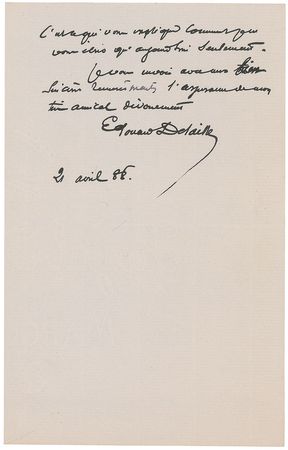 C'est ce qui vous explique comment je ne
vous écris qu'aujourd'hui seulement.
Je vous envoie avec mes
sincères remerciements l'expression de mon
bien amical dévouement
Edouard Detaille
21 avril 86.